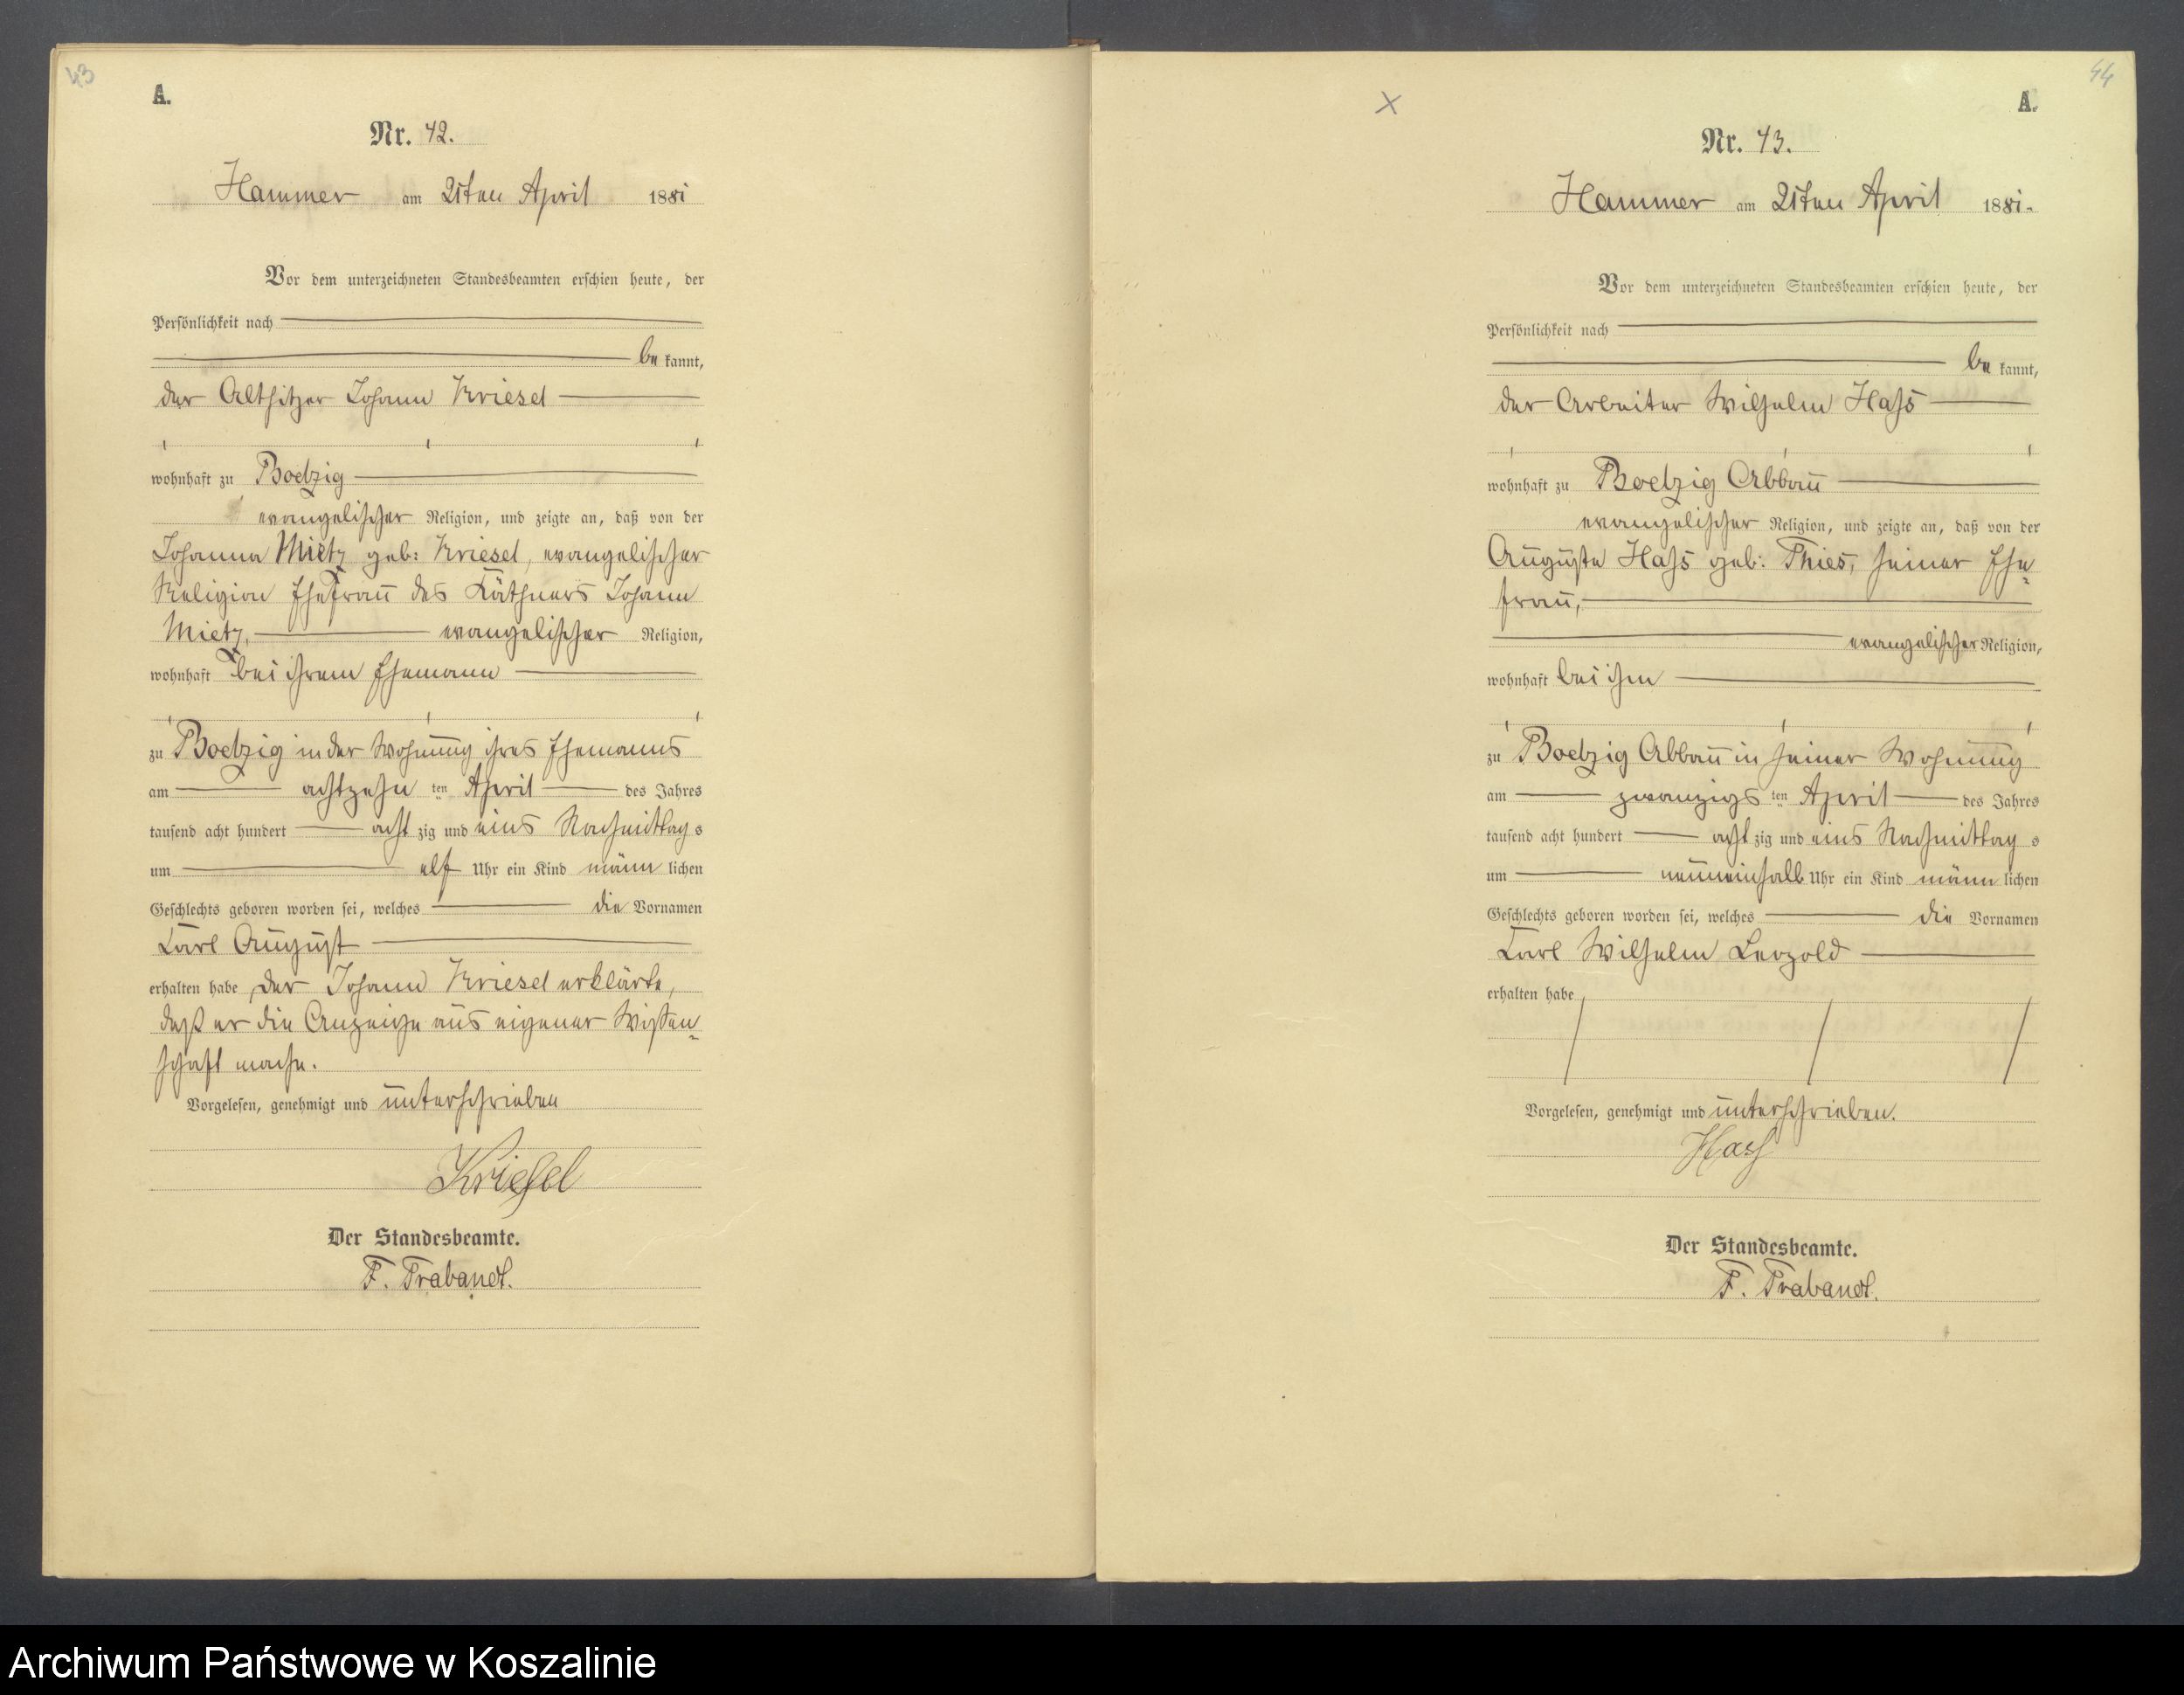 43
A.
Nr. 42.
Hammer am 21ten April 1881
Vor dem unterzeichneten Standesbeamten erschien heute, der
Persönlichkeit nach
be kannt,
der Altsitzer Johann Kriesel
wohnhaft zu Boetzig
evangelischer Religion, und zeigte an, daß von der
Johanna Mietz geb: Kriesel, evangelischer
Religion Ehefrau des Käthners Johann
Mietz, evangelischer Religion,
wohnhaft bei ihrem Ehemann
zu Boetzig in der Wohnung ihres Ehemanns
am achtzehn ten April des Jahres
tausend acht hundert acht zig und eins Nachmittag s
um elf Uhr ein Kind männ lichen
Geschlechts geboren worden sei, welches die Vornamen
Carl August
erhalten habe, der Johann Kriesel erklärte,
daß er die Anzeige aus eigener Wissen-
schaft mache.
Vorgelesen, genehmigt und unterschrieben
Kriesel
Der Standesbeamte.
F. Trabandt.
44
A.
Nr. 43.
Hammer am 21ten April 1881.
Vor dem unterzeichneten Standesbeamten erschien heute, der
Persönlichkeit nach
be kannt,
der Arbeiter Wilhelm Hass
wohnhaft zu Boetzig Abbau
evangelischer Religion, und zeigte an, daß von der
Auguste Hass geb: Thies, seiner Ehe-
frau,
evangelischer Religion,
wohnhaft bei ihm
zu Boetzig Abbau in seiner Wohnung
am zwanzigs ten April des Jahres
tausend acht hundert acht zig und eins Nachmittag s
um neuneinhalb Uhr ein Kind männ lichen
Geschlechts geboren worden sei, welches die Vornamen
Carl Wilhelm Leopold
erhalten habe
Vorgelesen, genehmigt und unterschrieben.
Hass
Der Standesbeamte.
F. Trabandt.
Archiwum Państwowe w Koszalinie